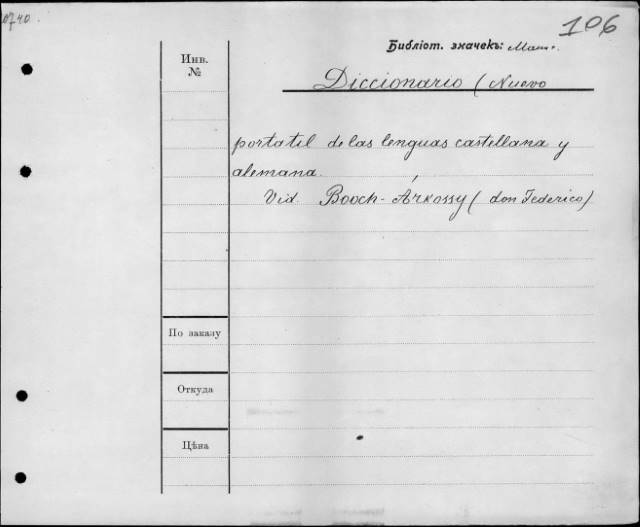 0740.
106
Библіот. значекъ:
Инв.
№
Diccionario (Nuevo
portatil de las lenguas castellana y
alemana.
Vid. Booch-Árkossy (don Federico)
По заказу
Откуда
Цѣна